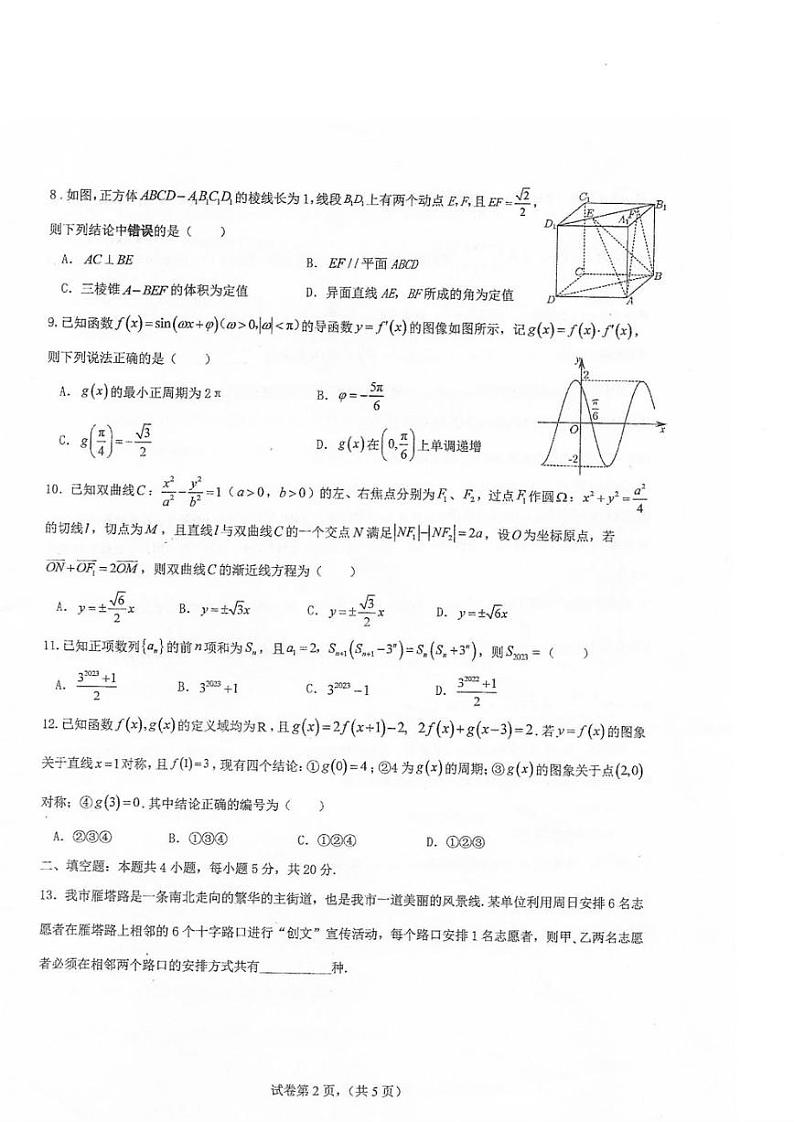 8.如图,正方体ABCD-A₁B₁C₁D₁的棱线长为1,线段B₁D₁上有两个动点E,F,且EF=√2/2,
则下列结论中错误的是( )
A. AC⊥BE
B. EF//平面ABCD
C. 三棱锥A-BEF的体积为定值
D. 异面直线AE,BF所成的角为定值
C₁
B₁
E
F
D₁
A₁
C
B
D
A
9.已知函数f(x)=sin(ωx+φ)(ω>0,|ω|<π)的导函数y=f′(x)的图像如图所示,记g(x)=f(x)·f′(x),
则下列说法正确的是( )
A. g(x)的最小正周期为2π
B. φ=-5π/6
C. g(π/4)=-√3/2
D. g(x)在(0,π/6)上单调递增
y
2
π/6
O
x
-2
10. 已知双曲线C:x²/a²-y²/b²=1(a>0,b>0)的左、右焦点分别为F₁、F₂,过点F₁作圆Ω:x²+y²=a²/4
的切线l,切点为M,且直线l与双曲线C的一个交点N满足|NF₁|-|NF₂|=2a,设O为坐标原点,若
ON+OF₁=2OM,则双曲线C的渐近线方程为( )
A. y=±√6/2x
B. y=±√3x
C. y=±√3/2x
D. y=±√6x
11.已知正项数列{aₙ}的前n项和为Sₙ,且a₁=2,Sₙ₊₁(Sₙ₊₁-3ⁿ)=Sₙ(Sₙ+3ⁿ),则S₂₀₂₃=( )
A. (3²⁰²³+1)/2
B. 3²⁰²³+1
C. 3²⁰²³-1
D. (3²⁰²²+1)/2
12.已知函数f(x),g(x)的定义域均为R,且g(x)=2f(x+1)-2, 2f(x)+g(x-3)=2.若y=f(x)的图象
关于直线x=1对称,且f(1)=3,现有四个结论:①g(0)=4;②4为g(x)的周期;③g(x)的图象关于点(2,0)
对称;④g(3)=0.其中结论正确的编号为( )
A. ②③④
B. ①③④
C. ①②④
D. ①②③
二、填空题:本题共4小题,每小题5分,共20分.
13. 我市雁塔路是一条南北走向的繁华的主街道,也是我市一道美丽的风景线.某单位利用周日安排6名志
愿者在雁塔路上相邻的6个十字路口进行“创文”宣传活动,每个路口安排1名志愿者,则甲、乙两名志愿
者必须在相邻两个路口的安排方式共有__________种.
试卷第2页,(共5页)